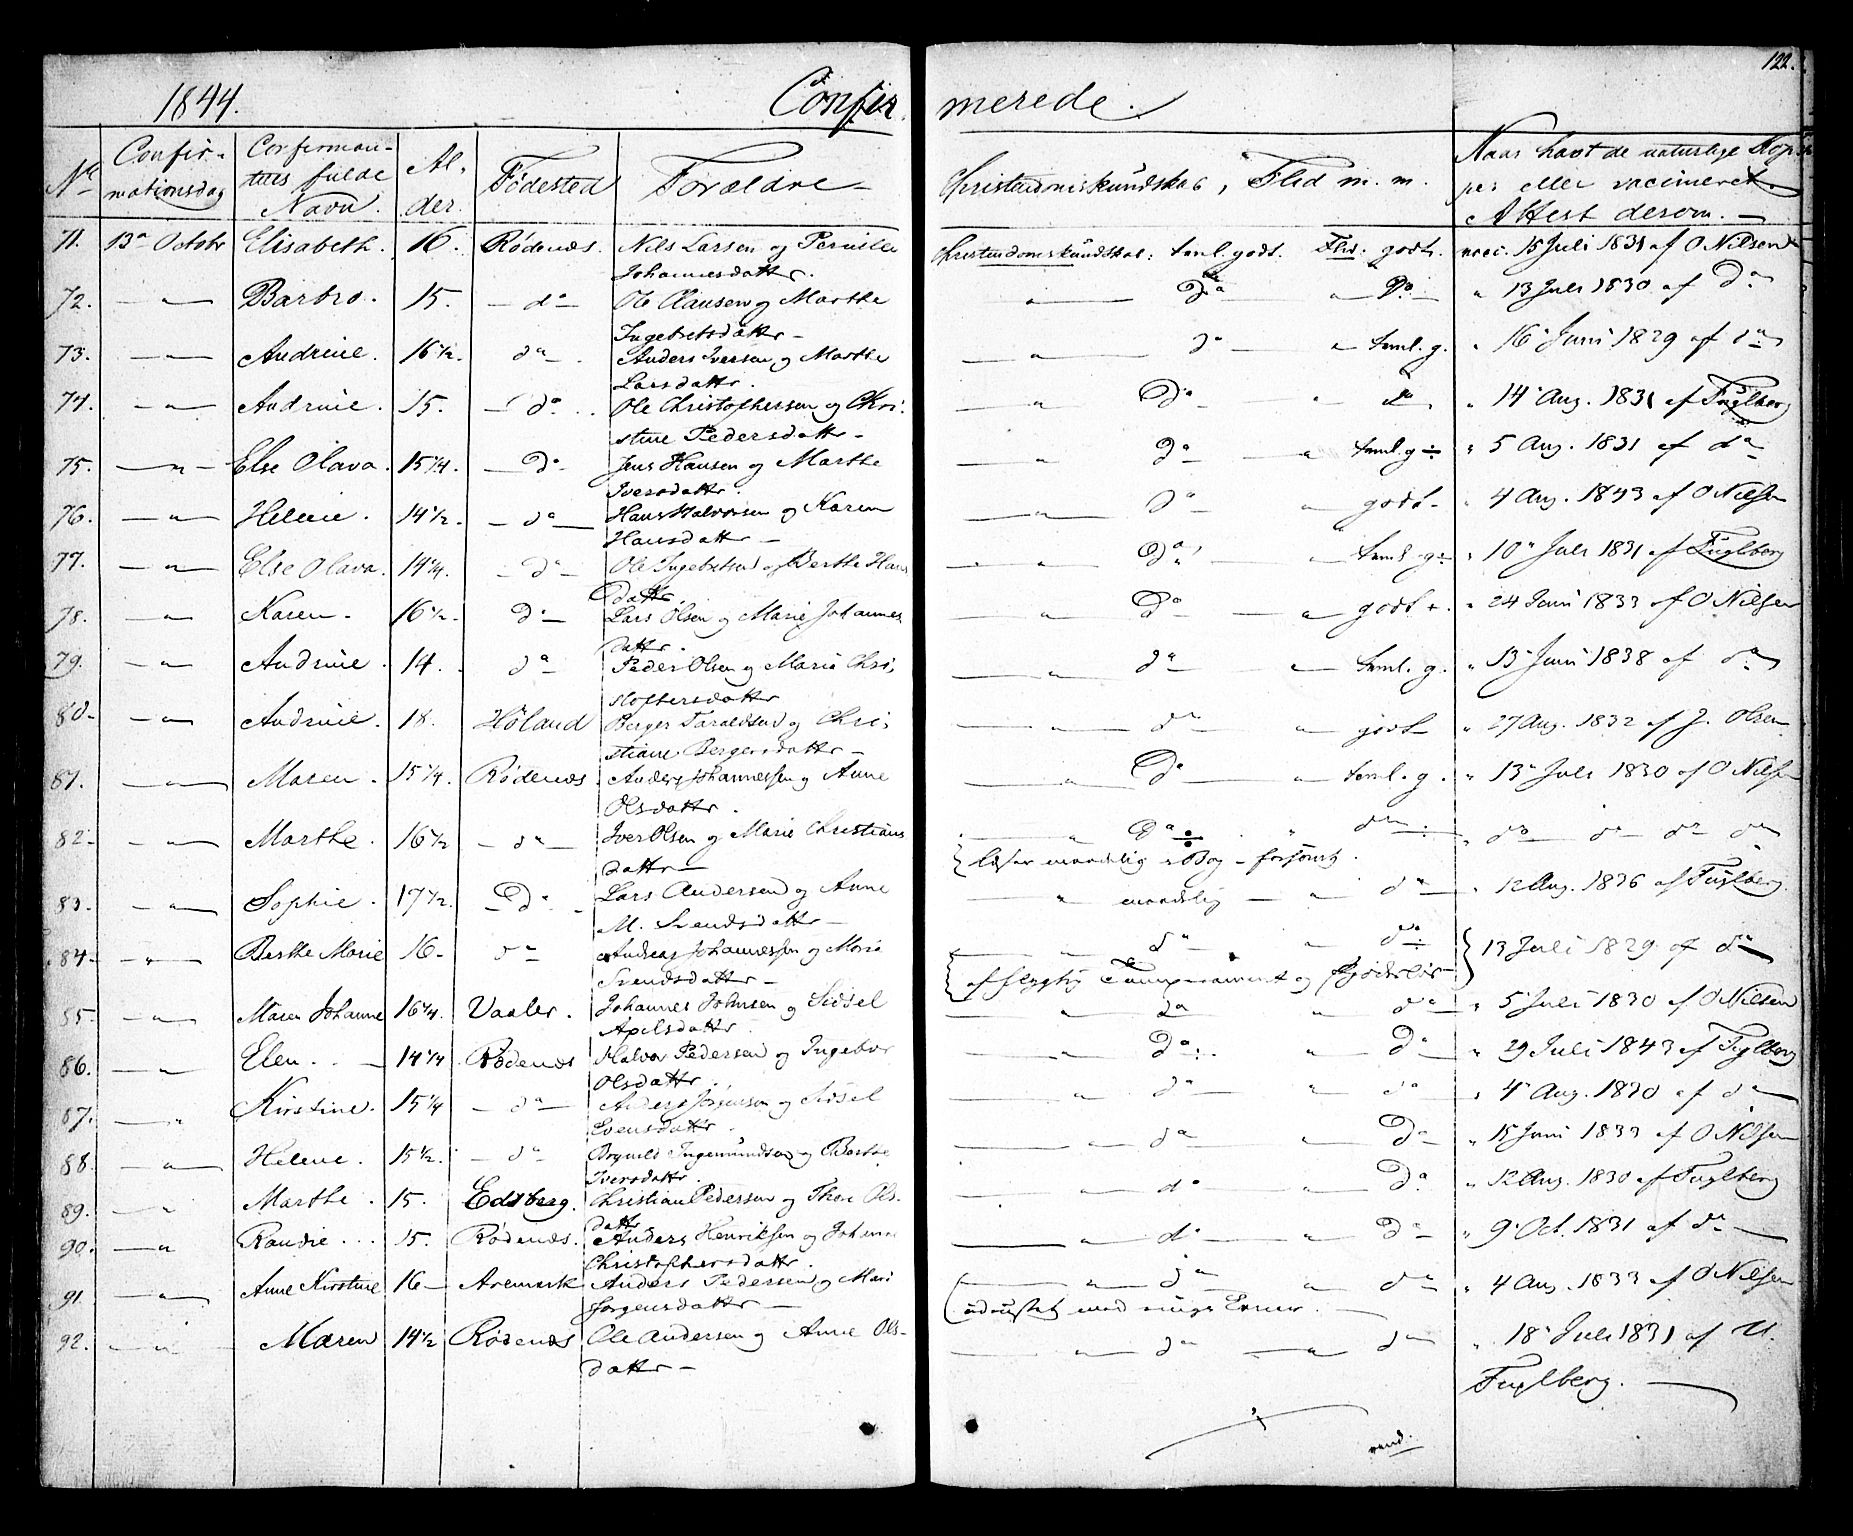 122.
1844. Confir- merede.
No Confir-mationsdag Confirman-tens fulde Navn. Al-der. Fødested Forældre Christendomskundskab, Flid m. m. Naar havt de naturlige Kopper eller vaccineret. Attest derom.
71. 13de Octobr Elisabeth. 16. Rødenæs. Nils Larsen og Pernille Christendomskundskab: teml. godt. Flid: godt. vacc. 15 Juli 1831 af O Nilsen
Johannesdattr.
72. — " — Barbro. 15. — do — Ole Clausen og Marthe — " — Do " Do — " 13 Juli 1830 af Do
Ingebretsdattr —
73. — " — Andrine. 16 1/2. do — Anders Iversen og Marthe — " — do — " teml. g. " 16 Juni 1829 af do
Larsdattr.
74. — " — Andrine. 15. — do . Ole Christophersen og Chri- — " Do " do " 14 Aug. 1831 af Fuglberg
stine Pedersdattr —
75. — " — Else Olava. 15 1/4. — Do — Jens Hansen og Marthe — " Do — " teml. g ÷ " 5 Aug. 1831 af do
Iversdattr.
76. — " — Helene. 14 1/2. — do — Hans Halvorsen og Karen — " — Do — " godt — " 4 Aug. 1843 af O Nilsen
Hansdattr —
77. — " — Else Olava. 14 3/4. — Do — Ole Ingebretsen og Berthe Hans — " — Do — " teml. g ÷ " 10 Juli 1831 af Fuglberg
dattr.
78. — " — Karen. 16 1/2. Do — Lars Olsen og Marie Johannes — " — Do — " godt +. " 24 Juni 1833 af O Nilsen
dattr.
79. — " — Andrine. 14. do — Peder Olsen og Marie Chri- — " — do — " teml. g. " 13 Juni 1838 af do
stofhersdattr
80. — " — Andrine. 18. Høland Berger Taraldsen og Chri- — " — do " godt " 27 Aug. 1832 af J. Olsen
stiane Bergersdattr —
81. — " — Maren. 15 1/4. Rødenæs. Anders Johannessen og Anne — " — Do — " teml. g. " 13 Juli 1830 af O Nilsen
Olsdattr.
82. — " — Marthe. 16 1/2 — do — Iver Olsen og Marie Christians — " Do ÷ " do ÷ " do do do do
dattr — læser maadelig i Bog —
83. — " — Sophie. 17 1/2. — Do — Lars Andersen og Anne — " maadelig — " — do — " 12 Aug. 1836 af Fuglberg.
M. Svendsdattr —
84. — " — Berthe Marie 16 — do Andreas Johannessen og Marie — do — " do ÷ 13 Juli 1829 af do
Svendsdattr — Temperament og
85. — " — Maren Johanne 16 1/4. Vaaler. Johannes Johnsen og Sidsel — " do " do " 5 Juli 1830 af O Nilsen
Apelsdattr.
86. — " — Elen. — 14 1/4. Rødenæs Halvor Pedersen og Ingebor — " — Do — " Do — " 29 Juli 1843 af Fuglberg
Olsdattr.
87. — " Kirstine. 15 1/4 — do — Anders Jørgensen og Sidsel — " do " do " 4 Aug. 1830 af do
Svensdattr.
88. — " — Helene. 15 1/2. — do — Brynild Ingemundsen og Berthe — " do " Do — " 15 Juni 1833 af O Nilsen
Iversdattr.
89. — " Marthe. 15. Edsberg. Christian Pedersen og Thore Ols- — " do " Do " 12 Aug. 1830 af Fuglberg
dattr
90. — " Randie . . . 15. Rødenæs. Anders Henriksen og Johanne — " do " Do — " 9 Oct. 1831 af do —
Christophersdattr.
91. — " — Anne Kirstine 16 — Aremark Anders Pedersen og Mari — " do " do " 4 Aug. 1833 af O Nilsen
Jørgensdattr — udrustet med ringe Evner. —
92. — " — Maren 14 1/2 Rødenæs Ole Andersen og Anne Ols- — " do — " do " 18 Juli 1831 af U.
dattr — Fuglberg. —